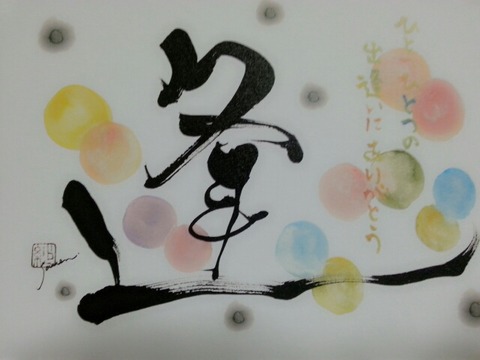 ひとつひとつの
出逢いにありがとう
逢